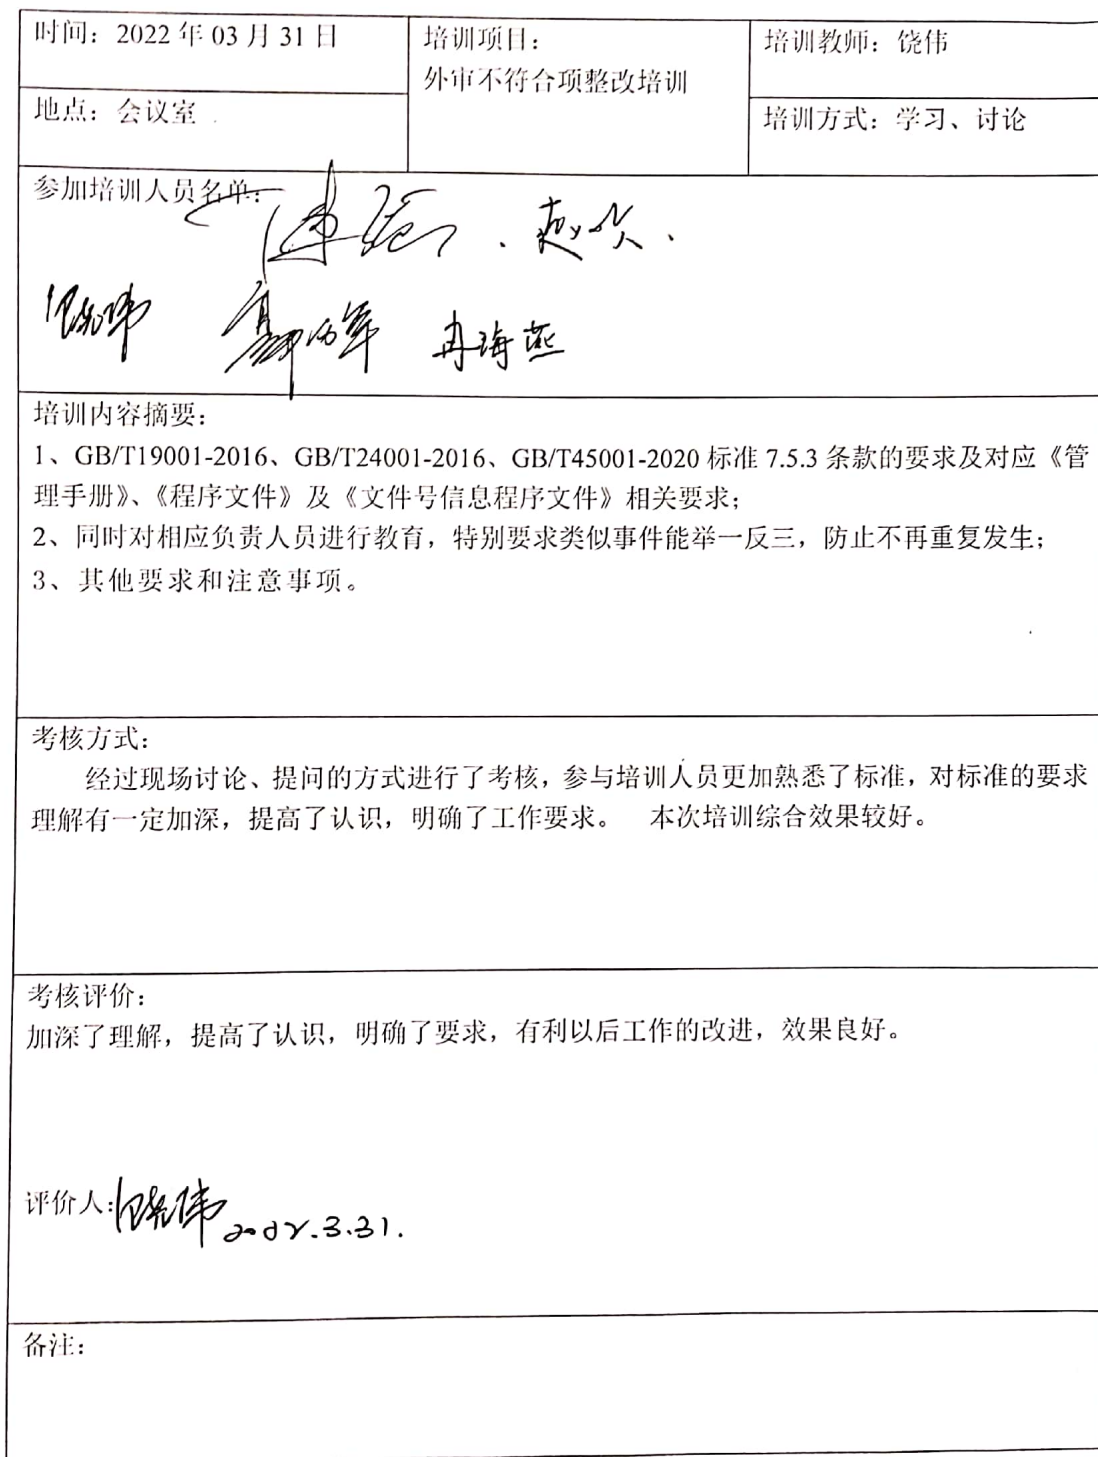 时间：2022 年 03 月 31 日
培训项目：
外审不符合项整改培训
培训教师：饶伟
地点：会议室
培训方式：学习、讨论
参加培训人员名单：
赵欢.
冉海燕
培训内容摘要：
1、GB/T19001-2016、GB/T24001-2016、GB/T45001-2020 标准 7.5.3 条款的要求及对应《管
理手册》、《程序文件》及《文件号信息程序文件》相关要求；
2、同时对相应负责人员进行教育，特别要求类似事件能举一反三，防止不再重复发生；
3、其他要求和注意事项。
考核方式：
经过现场讨论、提问的方式进行了考核，参与培训人员更加熟悉了标准，对标准的要求
理解有一定加深，提高了认识，明确了工作要求。 本次培训综合效果较好。
考核评价：
加深了理解，提高了认识，明确了要求，有利以后工作的改进，效果良好。
评价人： 2022.3.31.
备注：